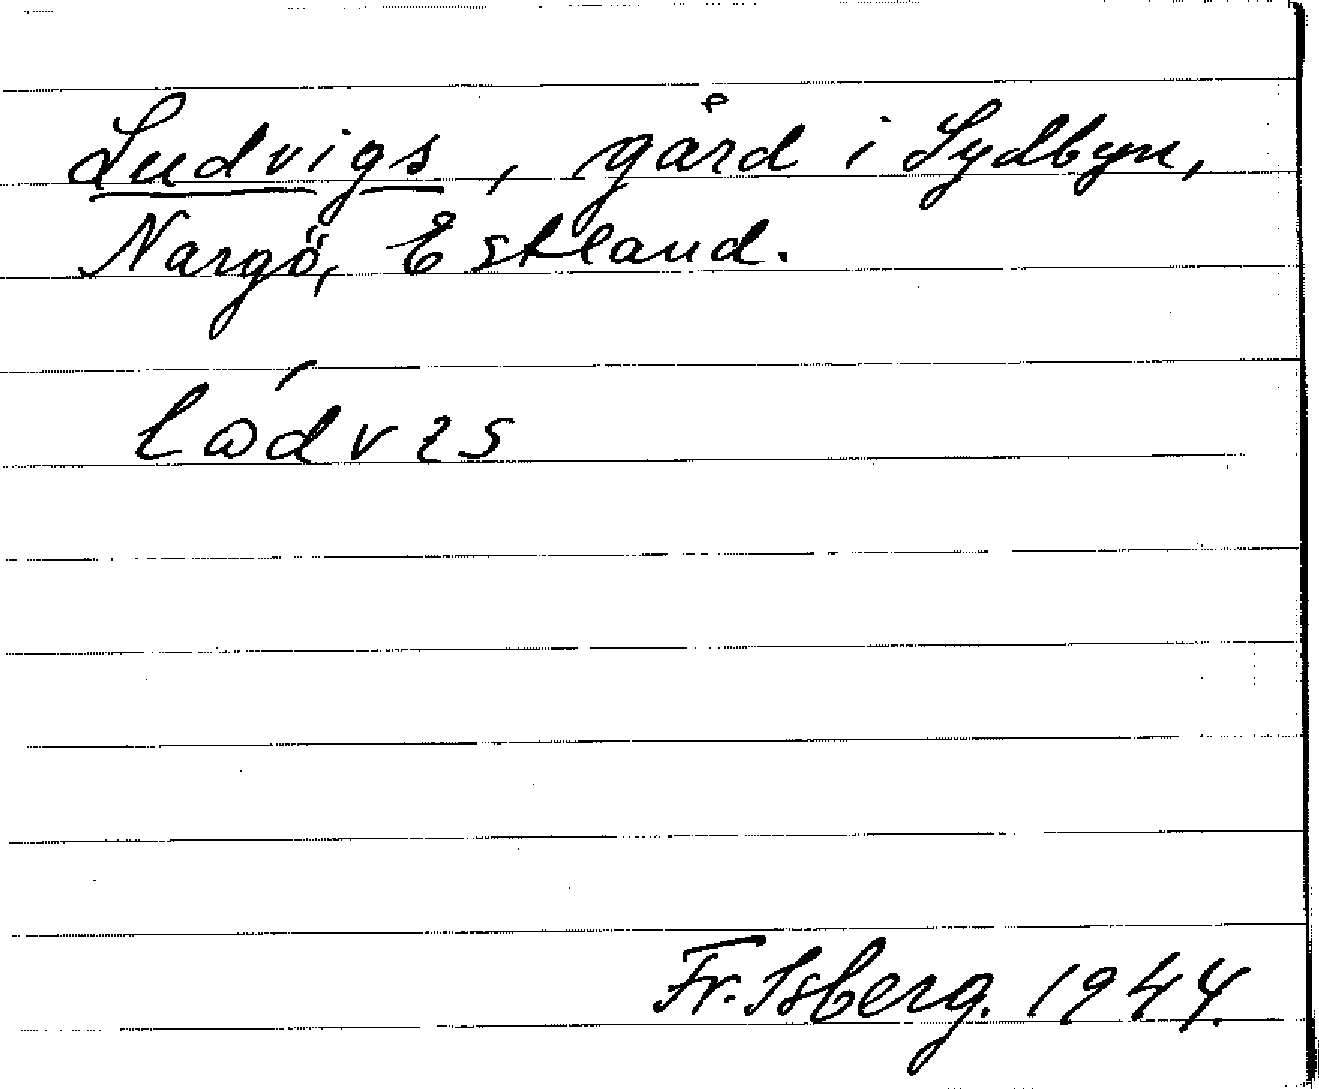 Ludvigs, gård i Sydbyn,
Nargö, Estland.
Fr. Isberg. 1944.